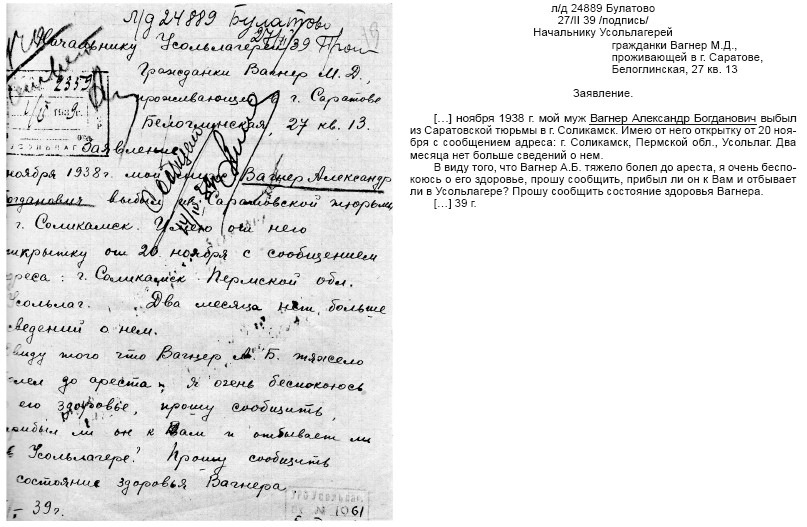 л/д 24889 Булатово
27/II 39
Начальнику Усольлагерей
2359
Гражданки Вагнер М. Д.,
проживающей в г. Саратове
Белоглинская, 27 кв. 13.
Заявление
ноября 1938г. мой муж Вагнер Александр
Богданович выбыл из Саратовской тюрьмы
г. Соликамск. Имею от него
открытку от 20 ноября с сообщением
адреса: г. Соликамск Пермской обл.
Усольлаг. Два месяца нет больше
сведений о нем.
виду того что Вагнер А. Б. тяжело
болел до ареста, я очень беспокоюсь
его здоровье, прошу сообщить,
прибыл ли он к Вам и отбывает ли
в Усольлагере? Прошу сообщить
состояние здоровья Вагнера
39г.
1061
л/д 24889 Булатово
27/II 39 /подпись/
Начальнику Усольлагерей
гражданки Вагнер М.Д.,
проживающей в г. Саратове,
Белоглинская, 27 кв. 13
Заявление.
[…] ноября 1938 г. мой муж Вагнер Александр Богданович выбыл
из Саратовской тюрьмы в г. Соликамск. Имею от него открытку от 20 нояб-
ря с сообщением адреса: г. Соликамск, Пермской обл., Усольлаг. Два
месяца нет больше сведений о нем.
В виду того, что Вагнер А.Б. тяжело болел до ареста, я очень беспо-
коюсь о его здоровье, прошу сообщить, прибыл ли он к Вам и отбывает
ли в Усольлагере? Прошу сообщить состояние здоровья Вагнера.
[…] 39 г.